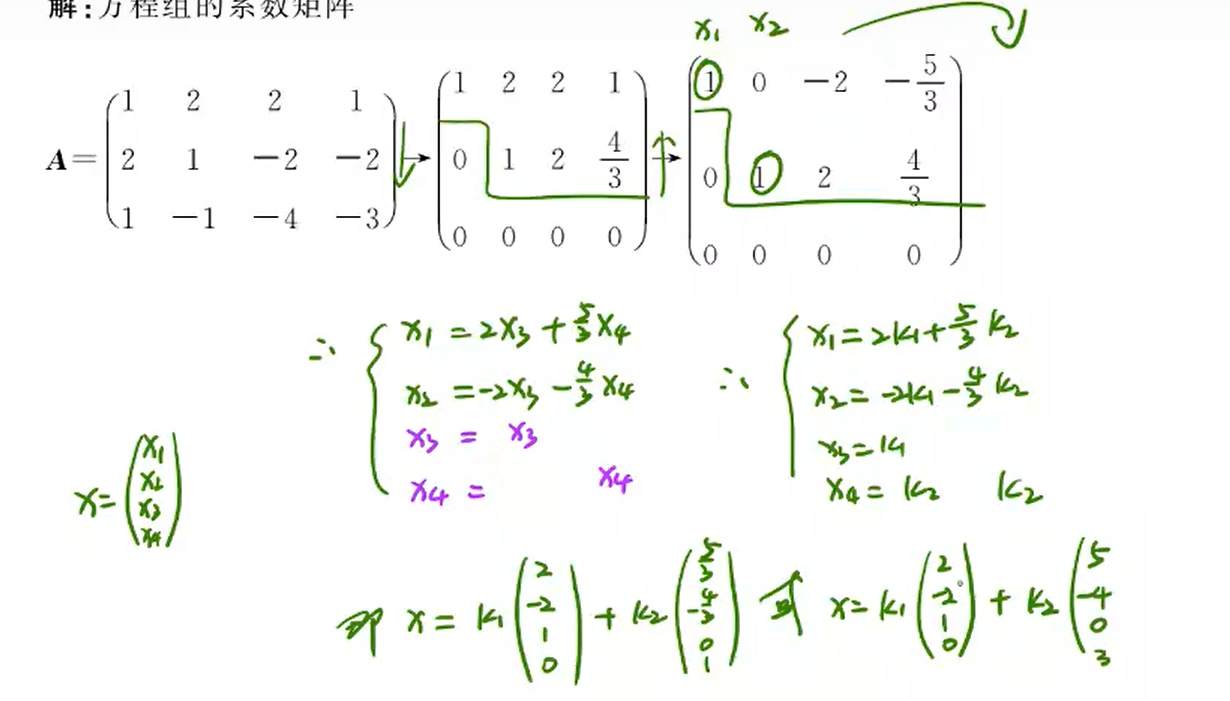 解:方程组的系数矩阵
x₁ x₂
A= (1 2 2 1; 2 1 −2 −2; 1 −1 −4 −3) → (1 2 2 1; 0 1 2 4/3; 0 0 0 0) → (1 0 −2 −5/3; 0 1 2 4/3; 0 0 0 0)
∴ { x₁ = 2x₃ + 5/3 x₄
x₂ = -2x₃ - 4/3 x₄
x₃ = x₃
x₄ = x₄
∴ { x₁ = 2k₁ + 5/3 k₂
x₂ = -2k₁ - 4/3 k₂
x₃ = k₁
x₄ = k₂ k₂
x = (x₁; x₂; x₃; x₄)
即 x = k₁ (2; -2; 1; 0) + k₂ (5/3; -4/3; 0; 1) 或 x = k₁ (2; -2; 1; 0) + k₂ (5; -4; 0; 3